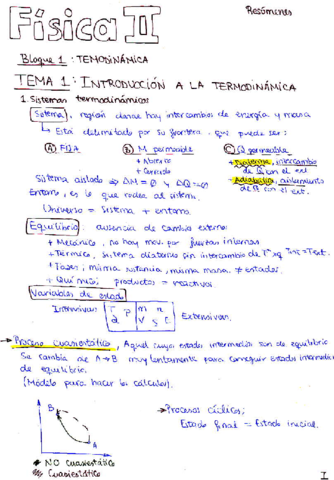 Resúmenes
Física II
Bloque 1: TEMODINÁMICA
TEMA 1: INTRODUCCIÓN A LA TERMODINÁMICA
1. Sistemas termodinámicos
Sistema, región donde hay intercambios de energía y masa
↳ Está delimitado por su frontera, que puede ser:
Ⓐ FIJA Ⓑ M permeable Ⓒ Q permeable
+ Abierto + Diatérma, intercambio
+ Cerrado de Q con el ext.
Sistema aislado ⇒ ΔM = 0 y ΔQ = 0 + Adiabática, aislamiento
Entorno, es lo que rodea al sistema. de Q con el ext.
Universo = Sistema + entorno.
Equilibrio: ausencia de cambio externo
+ Mecánico, no hay mov. por fuerzas internas
+ Térmico, sistema diatermo sin intercambio de Tª
+ Fases, misma sustancia, misma masa, ≠ estados.
+ Químico, productos = reactivos
Variables de estado
Intensivas T P m n Extensivas.
V S
→ Proceso cuasiestático, Aquel cuyos estados intermedios son de equilibrio
Se cambia de A→B muy lentamente para conseguir estados intermedios
de equilibrio.
(Modelo para hacer los cálculos).
B A
→ Procesos cíclicos;
Estado final = Estado inicial.
NO cuasiestático
Cuasiestático
1